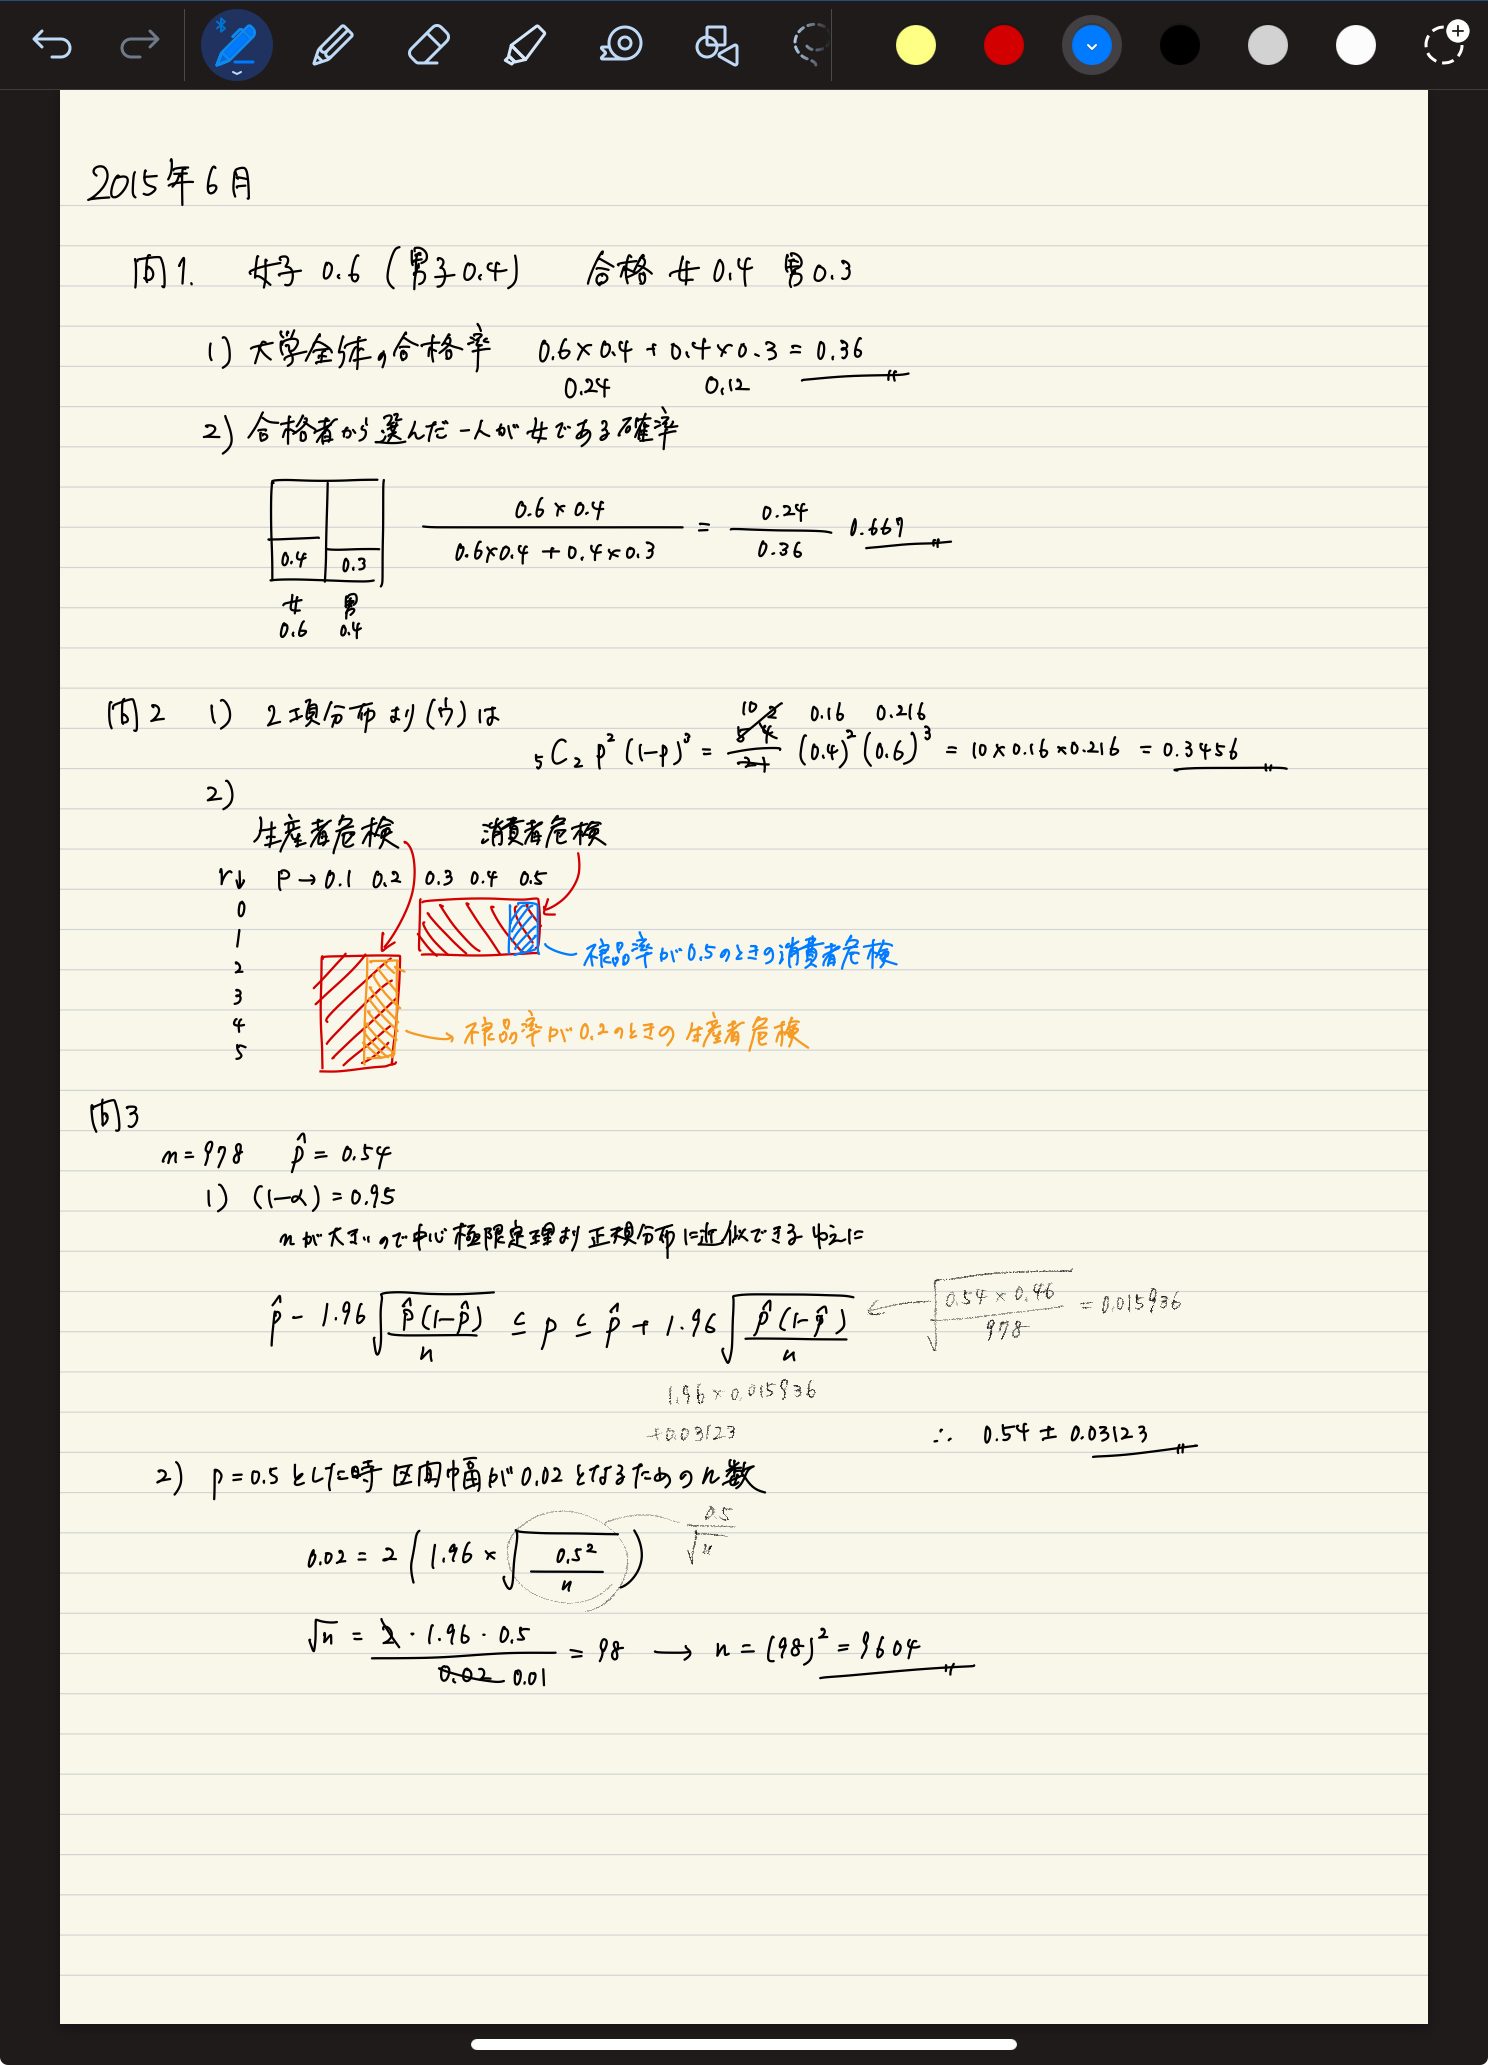 2015年6月
問1. 女子 0.6 (男子0.4) 合格 女 0.4 男 0.3
1) 大学全体の合格率 0.6×0.4 + 0.4×0.3 = 0.36
0.24 0.12
2) 合格者から選んだ一人が女である確率
0.4 0.3
女 男
0.6 0.4
0.6 × 0.4 / 0.6×0.4 + 0.4×0.3 = 0.24 / 0.36 0.667
問2 1) 2項分布より(ウ)は
10 2 0.16 0.216
₅C₂ p² (1-p)³ = 5 4 / 2 1 (0.4)² (0.6)³ = 10 × 0.16 × 0.216 = 0.3456
2)
生産者危検 消費者危検
r↓ P → 0.1 0.2 0.3 0.4 0.5
0
1
2
3
4
5
不良品率が0.5のときの消費者危検
不良品率が0.2のときの生産者危検
問3
n = 978 p̂ = 0.54
1) (1-α) = 0.95
nが大きいので中心極限定理より正規分布に近似できるゆえに
p̂ - 1.96 √(p̂(1-p̂) / n) ≤ p ≤ p̂ + 1.96 √(p̂(1-p̂) / n) ← √(0.54 × 0.46 / 978) = 0.015936
1.96 × 0.015936
±0.03123
∴ 0.54 ± 0.03123
2) p = 0.5 とした時 区間幅が0.02となるためのn数
0.02 = 2 (1.96 × √(0.5² / n)) 0.5 / √n
√n = 2 · 1.96 · 0.5 / 0.02 0.01 = 98 → n = (98)² = 9604